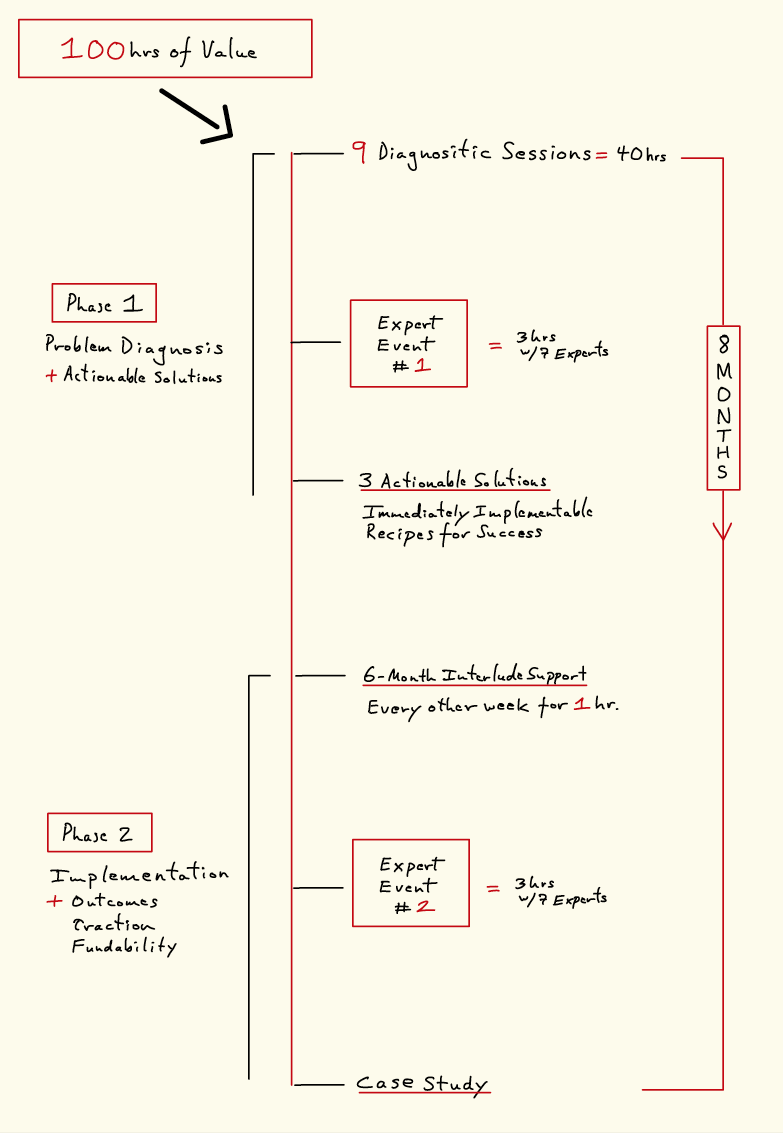 100hrs of Value
9 Diagnositic Sessions = 40hrs
Phase 1
Problem Diagnosis
+ Actionable Solutions
Expert
Event
#1
= 3hrs
w/7 Experts
8
M
O
N
T
H
S
3 Actionable Solutions
Immediately Implementable
Recipes for Success
6-Month Interlude Support
Every other week for 1 hr.
Phase 2
Implementation
+ Outcomes
Traction
Fundability
Expert
Event
#2
= 3hrs
w/7 Experts
Case Study